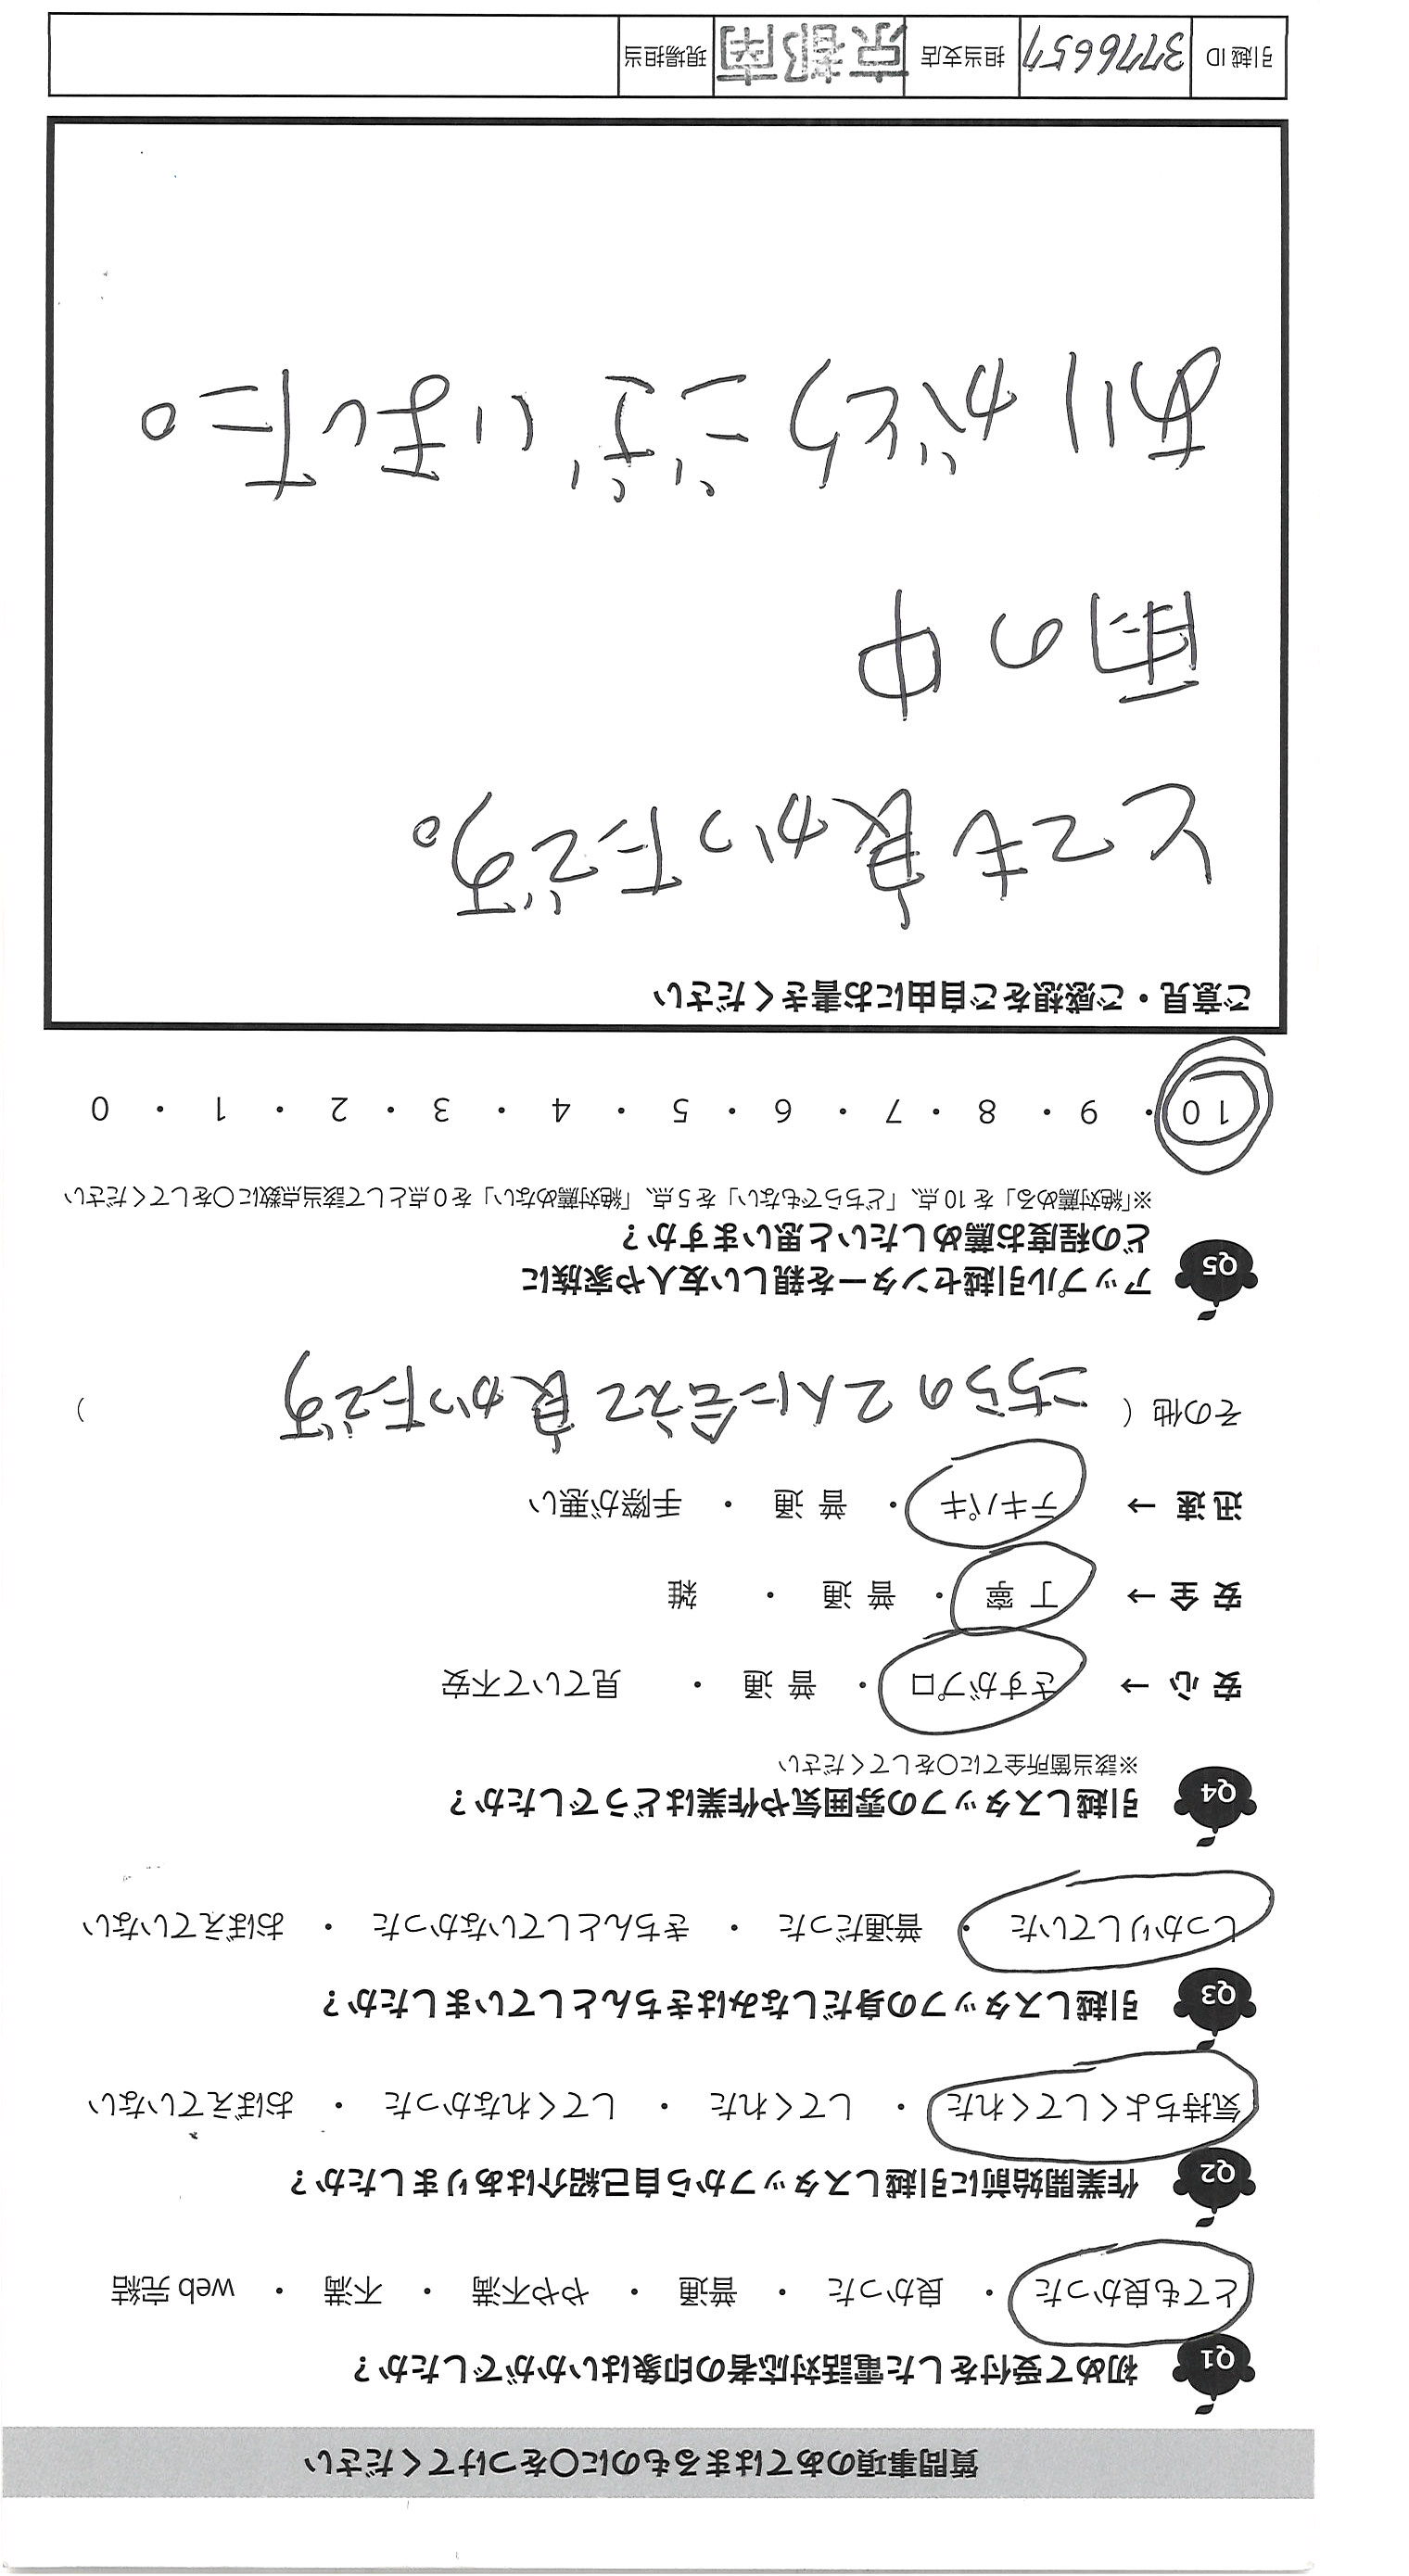 質問事項のあてはまるものに〇をつけてください
Q1 初めて受付をした電話対応者の印象はいかがでしたか？
とても良かった ・ 良かった ・ 普通 ・ やや不満 ・ 不満 ・ web 完結
Q2 作業開始前に引越しスタッフから自己紹介はありましたか？
気持ちよくしてくれた ・ してくれた ・ してくれなかった ・ おぼえていない
Q3 引越しスタッフの身だしなみはきちんとしていましたか？
しっかりしていた ・ 普通だった ・ きちんとしていなかった ・ おぼえていない
Q4 引越しスタッフの雰囲気や作業はどうでしたか？
※該当箇所全てに〇をしてください
安心 → さすがプロ ・ 普通 ・ 見ていて不安
安全 → 丁寧 ・ 普通 ・ 雑
迅速 → テキパキ ・ 普通 ・ 手際が悪い
その他（ こちらの2人に会えて良かったです ）
Q5 アップル引越センターを親しい友人や家族に
どの程度お薦めしたいと思いますか？
※「絶対薦める」を 10 点、「どちらでもない」を 5 点、「絶対薦めない」を 0 点として該当点数に〇をしてください
10 ・ 9 ・ 8 ・ 7 ・ 6 ・ 5 ・ 4 ・ 3 ・ 2 ・ 1 ・ 0
ご意見・ご感想をご自由にお書きください
とても良かったです。
雨の中
ありがとうございました。
引越 ID 3776657 担当支店 京都南 現場担当